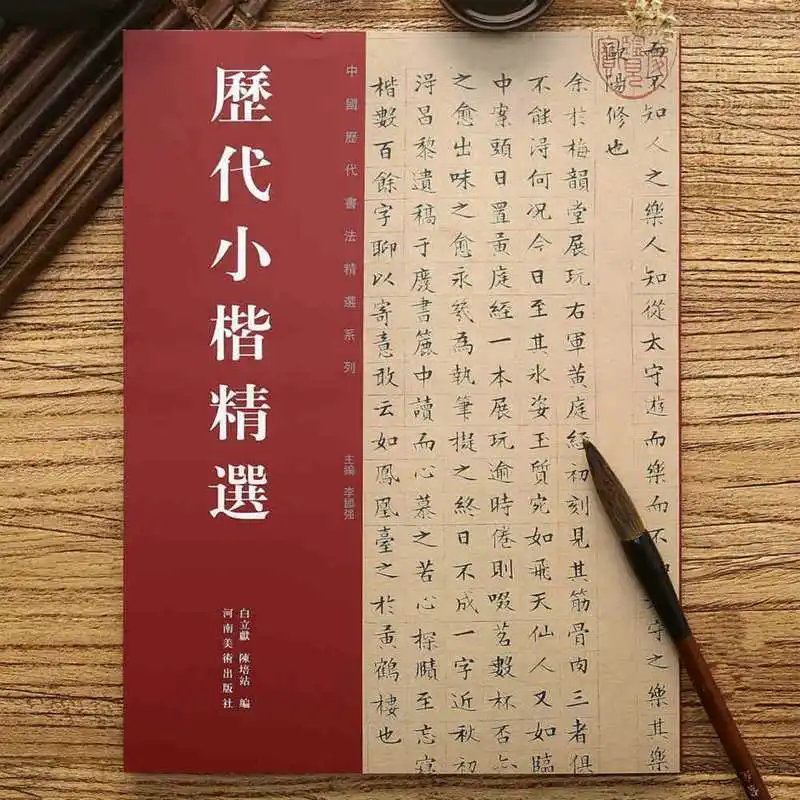 中國歷代書法精選系列
歷代小楷精選
主編 李國强
白立獻 陳培站 編
河南美術出版社
而不知人之樂人知從太守遊而樂而不守之樂其樂
歐陽修也
余於梅韻堂展玩右軍黄庭經初刻見其筋骨肉三者俱
不能淂何况今日至其氷姿玉質宛如飛天仙人又如臨
中案頭日置黄庭經一本展玩逾時倦則啜茗數杯否
之愈出味之愈永為執筆擬之終日不成一字近秋初
淂昌黎遺稿于慶書簏中讀而心慕之若心探賾至忘寢
楷數百餘字聊以寄意敢云如鳳凰臺之於黄鶴樓也